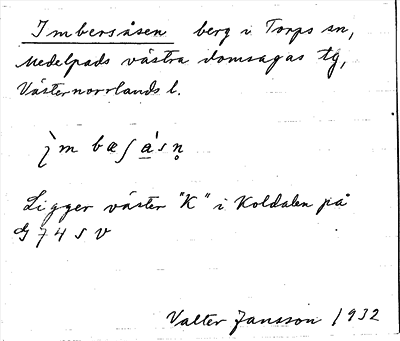 Imbersåsen berg i Torps sn,
Medelpads västra domsagas tg,
Västernorrlands l.
i̖m bæʃa̱'sn̥
Ligger väster "K" i Koldalen på
G 74 S V
Valter Jansson 1932